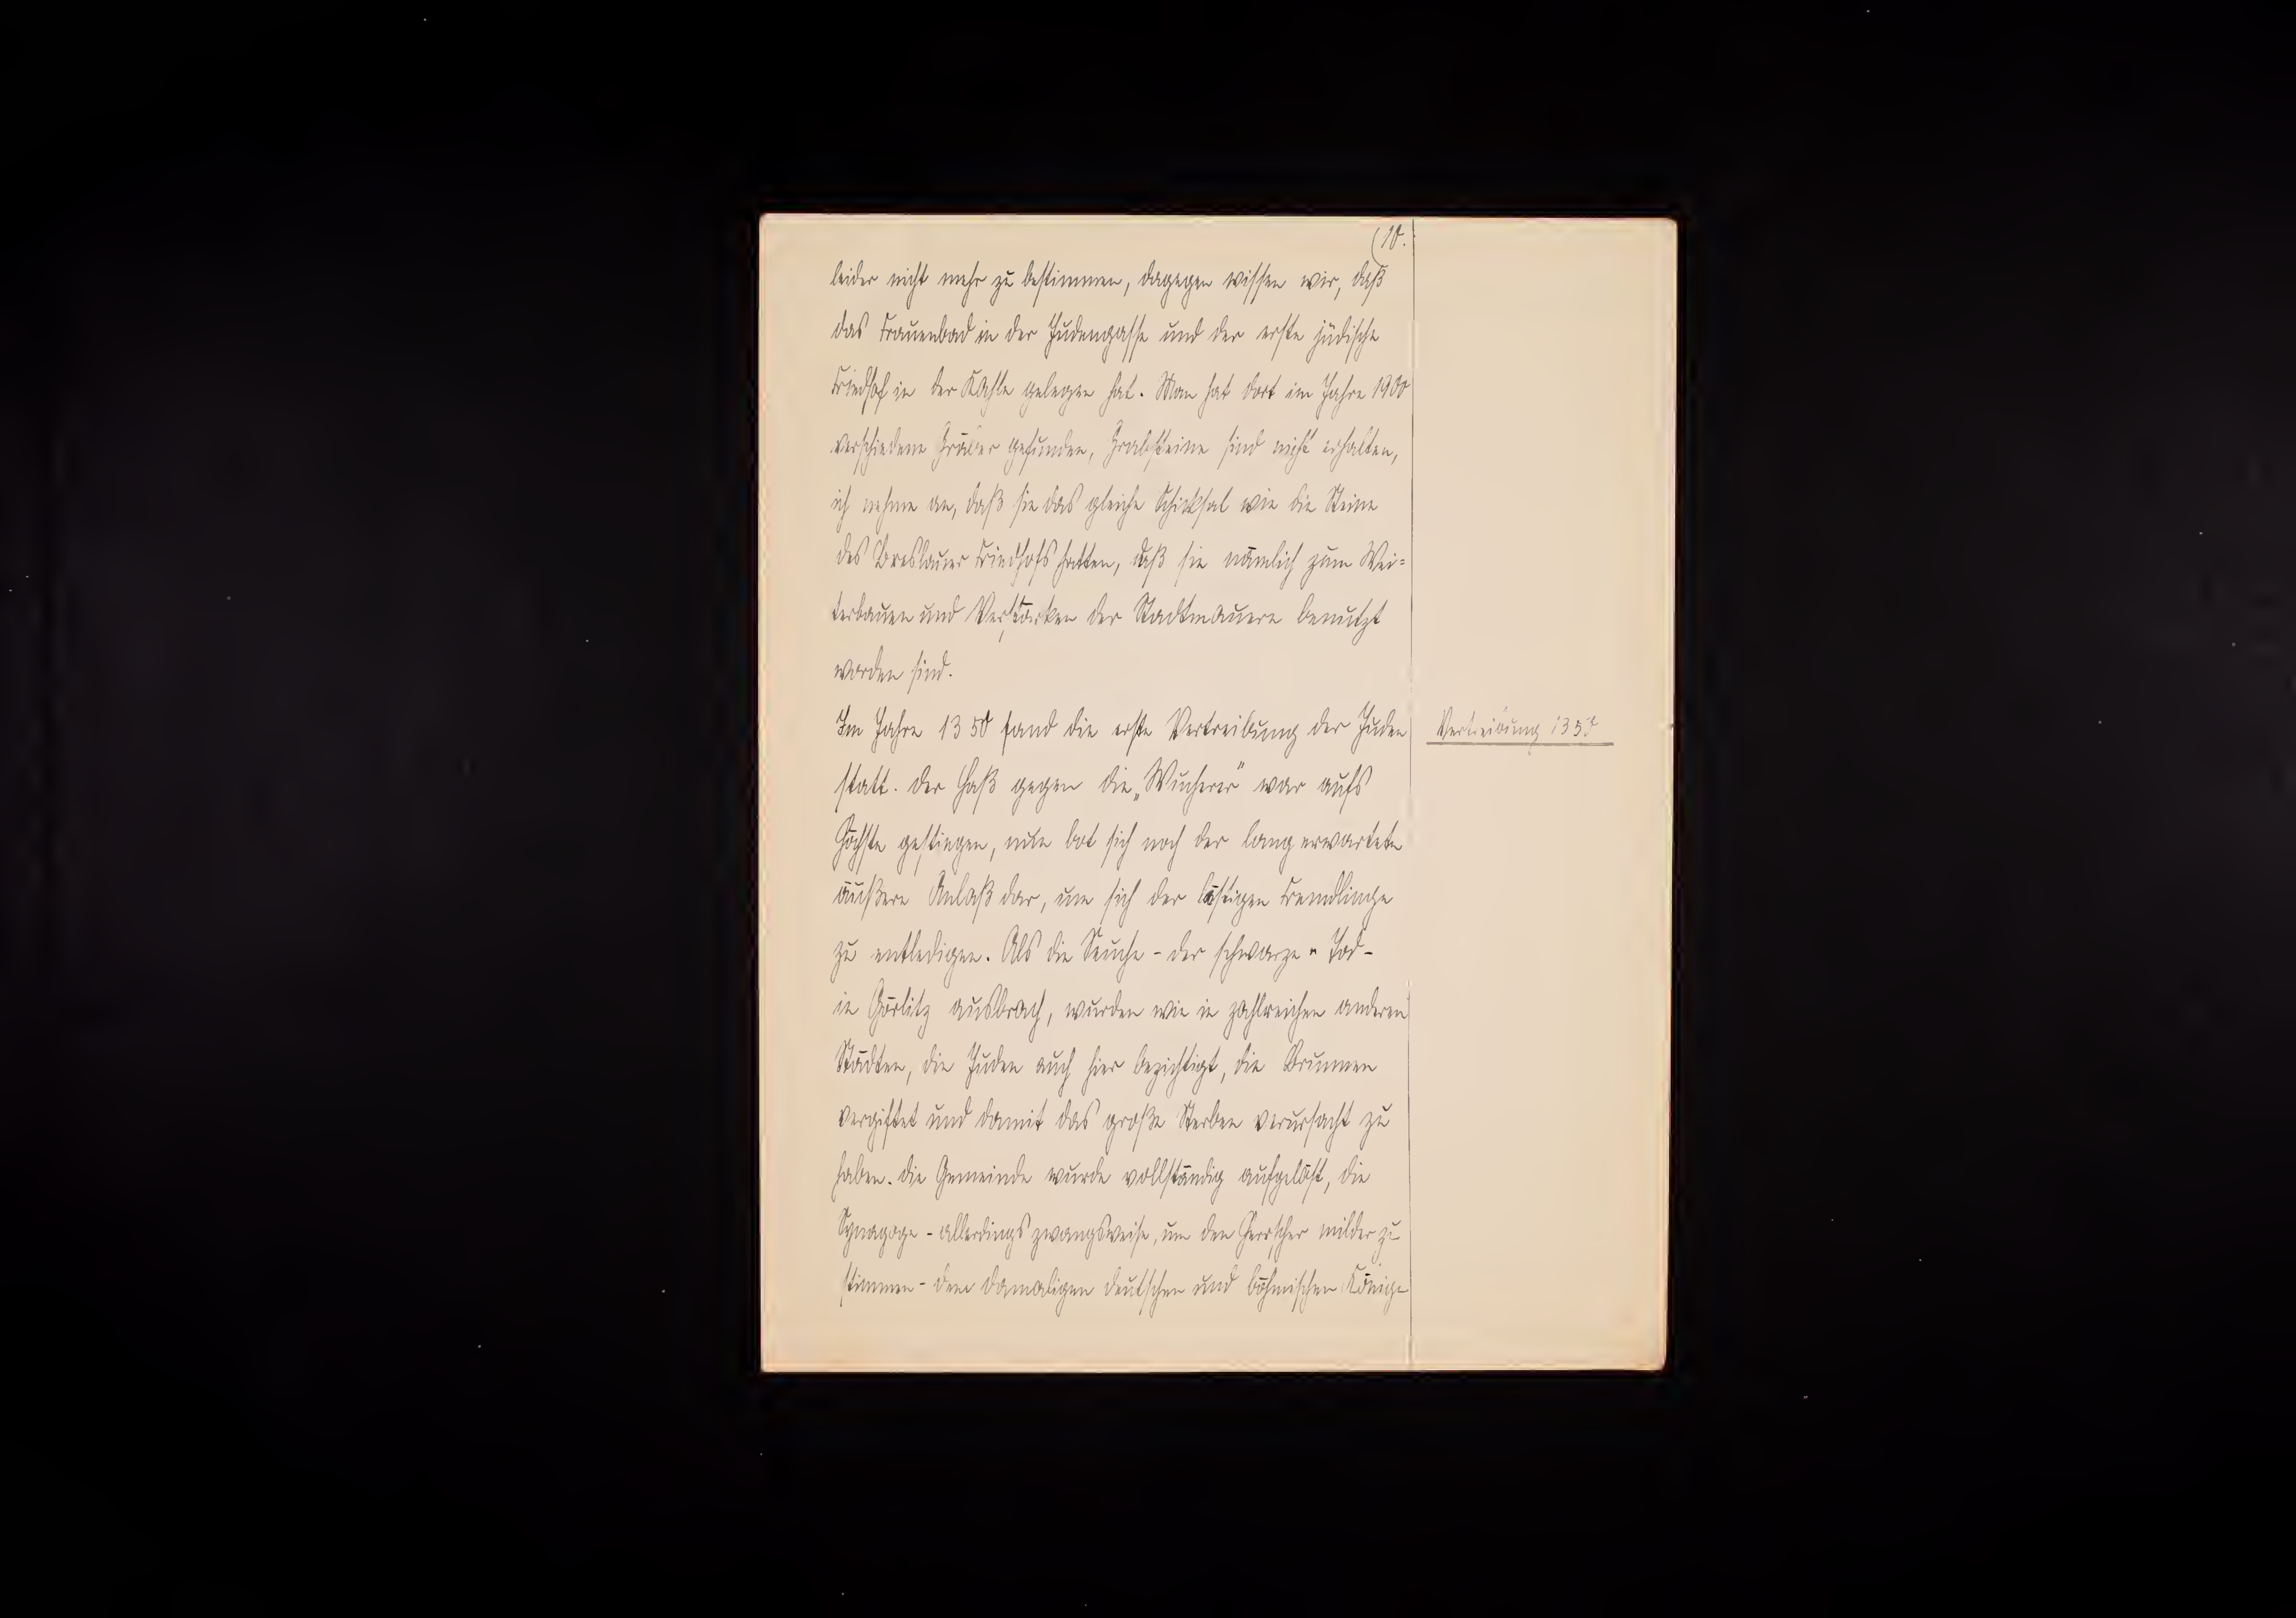 (10.
leider nicht mehr zu bestimmen, dagegen wissen wir, daß
das Frauenbad in der Judengasse und der erste jüdische
Friedhof in der Kahle gelegen hat. Man hat dort im Jahre 1900
verschiedene Gräber gefunden, Grabsteine sind nicht erhalten,
ich nehme an, daß sie das gleiche Schicksal wie die Steine
des Breslauer Friedhofs hatten, daß sie nämlich zum Wei=
terbauen und Verstärken der Stadtmauern benutzt
worden sind.
Im Jahre 1350 fand die erste Vertreibung der Juden
Vertreibung 1350
statt. Der Haß gegen die „Wucherer" war aufs
Höchste gestiegen, nun bot sich noch der lang erwartete
äußere Anlaß dar, um sich der lästigen Fremdlinge
zu entledigen. Als die Seuche - der schwarze " Tod -
in Görlitz ausbrach, wurden wie in zahlreichen anderen
Städten, die Juden auch hier bezichtigt, die Brunnen
vergiftet und damit das große Sterben verursacht zu
haben. Die Gemeinde wurde vollständig aufgelöst, die
Synagoge - allerdings zwangsweise, um den Herrscher milder zu
stimmen - dem damaligen deutschen und böhmischen Könige